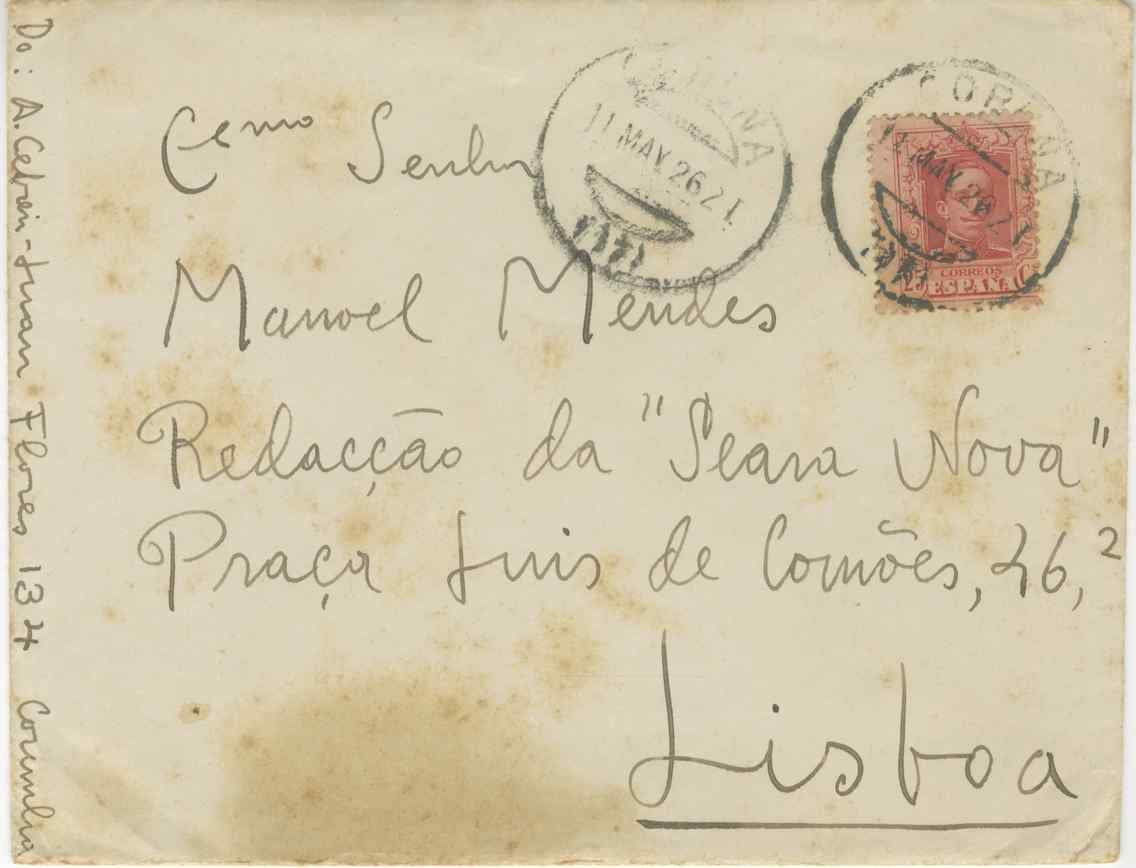 Do: A. Cebrei-Juan Flores 134 Corunha
CORUÑA
11 MAY.26.2T
CORUÑA
11 MAY.26
CORREOS
25 ESPAÑA Cs
Cemo Senhor
Manoel Mendes
Redacção da "Seara Nova"
Praça Luis de Camões, 46, 2
Lisboa